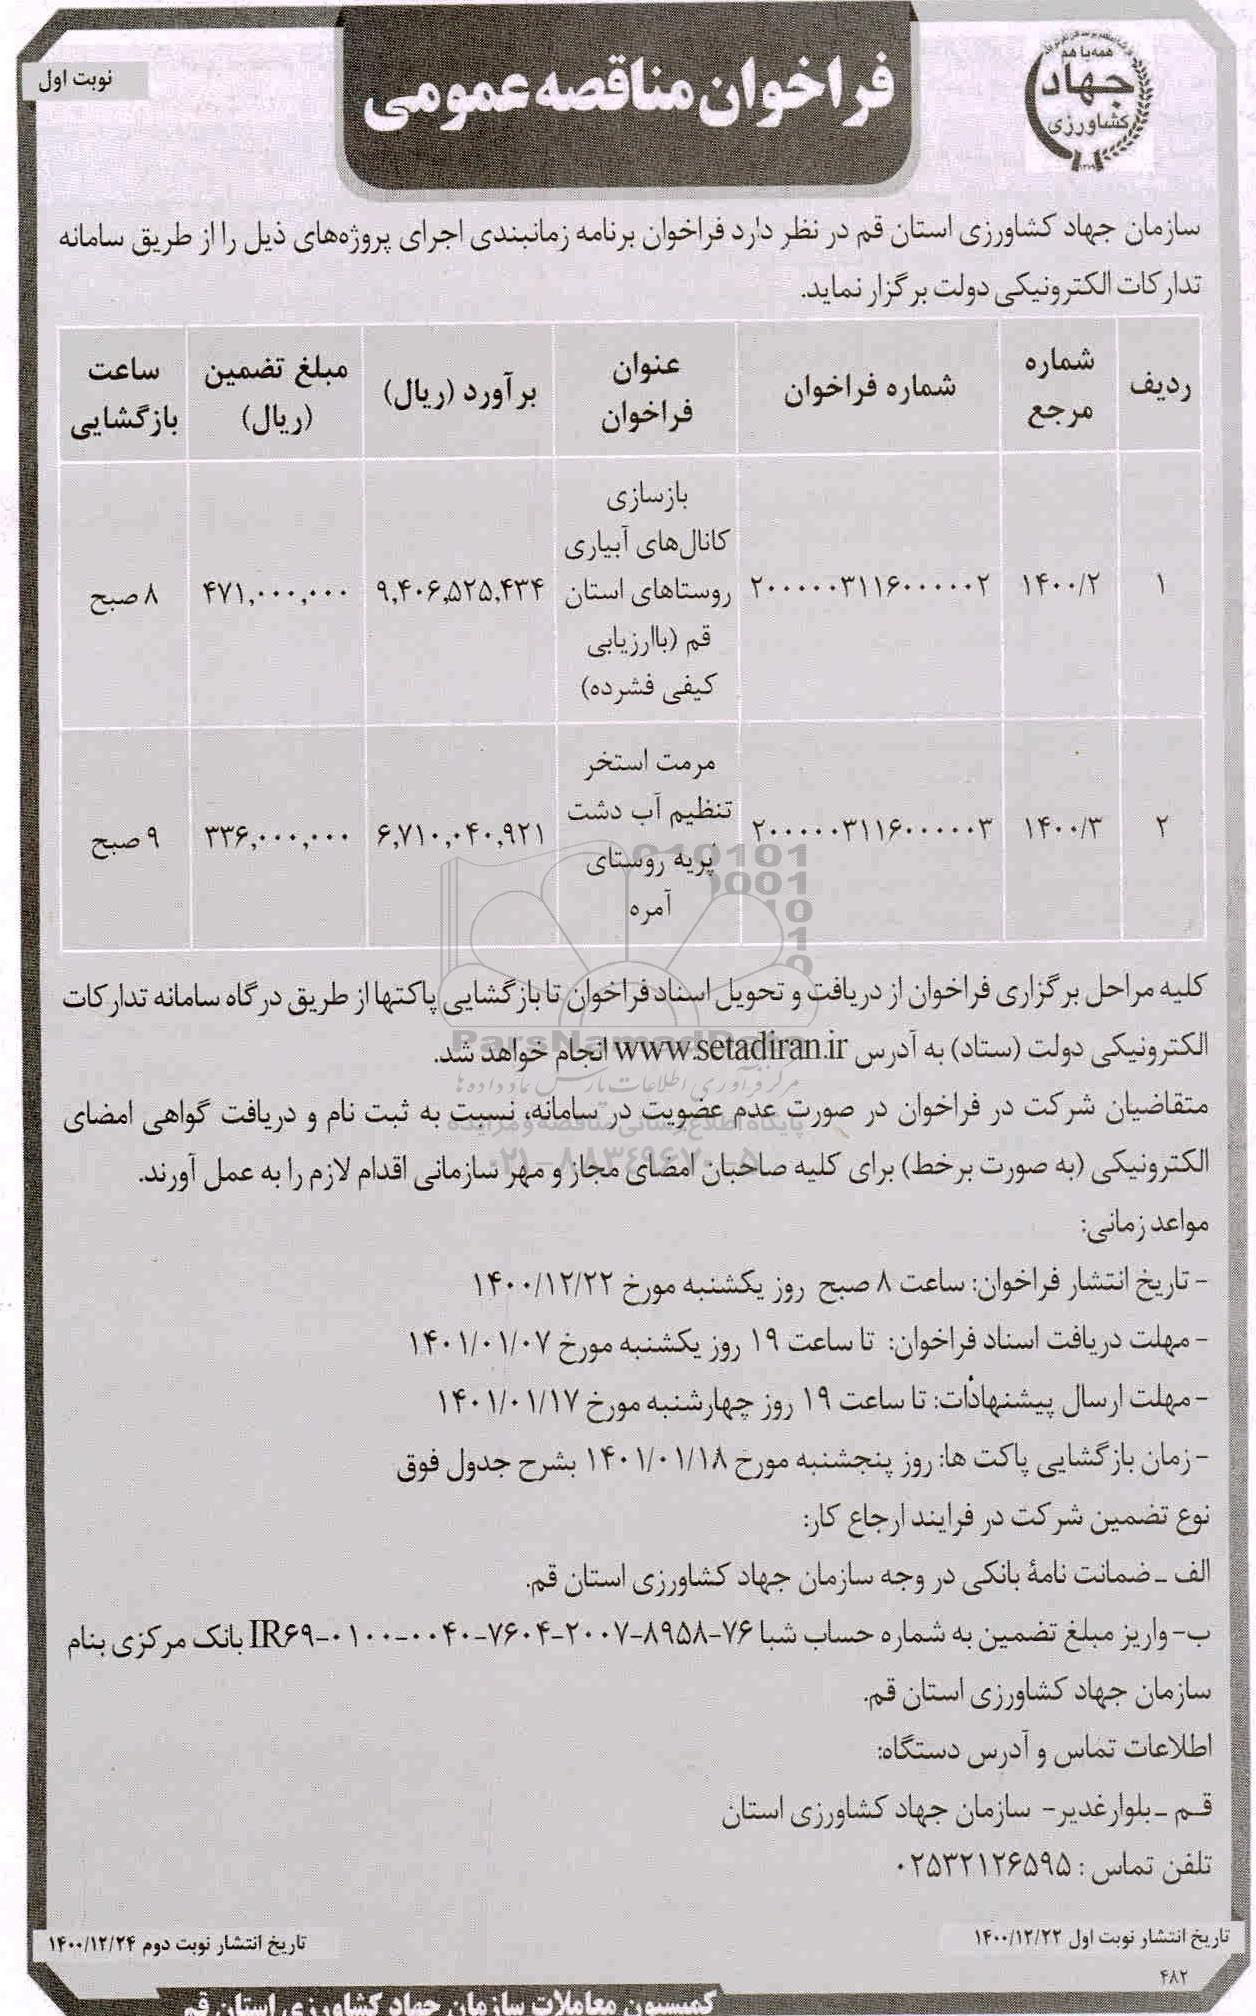 همه با هم
جهاد
کشاورزی
فراخوان مناقصه عمومی
نوبت اول
سازمان جهاد کشاورزی استان قم در نظر دارد فراخوان برنامه زمانبندی اجرای پروژه‌های ذیل را از طریق سامانه
تدارکات الکترونیکی دولت برگزار نماید.
ردیف | شماره مرجع | شماره فراخوان | عنوان فراخوان | برآورد (ریال) | مبلغ تضمین (ریال) | ساعت بازگشایی
۱ | ۱۴۰۰/۲ | ۲۰۰۰۰۰۳۱۱۶۰۰۰۰۰۲ | بازسازی کانال‌های آبیاری روستاهای استان قم (باارزیابی کیفی فشرده) | ۹,۴۰۶,۵۲۵,۴۳۴ | ۴۷۱,۰۰۰,۰۰۰ | ۸ صبح
۲ | ۱۴۰۰/۳ | ۲۰۰۰۰۰۳۱۱۶۰۰۰۰۰۳ | مرمت استخر تنظیم آب دشت پریه روستای آمره | ۶,۷۱۰,۰۴۰,۹۲۱ | ۳۳۶,۰۰۰,۰۰۰ | ۹ صبح
کلیه مراحل برگزاری فراخوان از دریافت و تحویل اسناد فراخوان تا بازگشایی پاکتها از طریق درگاه سامانه تدارکات
الکترونیکی دولت (ستاد) به آدرس www.setadiran.ir انجام خواهد شد.
ParsNamadData
مرکز فرآوری اطلاعات پارس نماد داده‌ها
متقاضیان شرکت در فراخوان در صورت عدم عضویت در سامانه، نسبت به ثبت نام و دریافت گواهی امضای
پایگاه اطلاع رسانی مناقصه و مزایده
الکترونیکی (به صورت برخط) برای کلیه صاحبان امضای مجاز و مهر سازمانی اقدام لازم را به عمل آورند.
۰۲۱-۸۸۳۴۹۶۷۰-۵
مواعد زمانی:
- تاریخ انتشار فراخوان: ساعت ۸ صبح روز یکشنبه مورخ ۱۴۰۰/۱۲/۲۲
- مهلت دریافت اسناد فراخوان: تا ساعت ۱۹ روز یکشنبه مورخ ۱۴۰۱/۰۱/۰۷
- مهلت ارسال پیشنهادات: تا ساعت ۱۹ روز چهارشنبه مورخ ۱۴۰۱/۰۱/۱۷
- زمان بازگشایی پاکت ها: روز پنجشنبه مورخ ۱۴۰۱/۰۱/۱۸ بشرح جدول فوق
نوع تضمین شرکت در فرایند ارجاع کار:
الف ـ ضمانت نامهٔ بانکی در وجه سازمان جهاد کشاورزی استان قم.
ب- واریز مبلغ تضمین به شماره حساب شبا IR۶۹-۰۱۰۰-۰۰۴۰-۷۶۰۴-۲۰۰۷-۸۹۵۸-۷۶ بانک مرکزی بنام
سازمان جهاد کشاورزی استان قم.
اطلاعات تماس و آدرس دستگاه:
قـم ـ بلوارغدیر- سازمان جهاد کشاورزی استان
تلفن تماس : ۰۲۵۳۲۱۲۶۵۹۵
تاریخ انتشار نوبت اول ۱۴۰۰/۱۲/۲۲
تاریخ انتشار نوبت دوم ۱۴۰۰/۱۲/۲۴
۴۸۲
کمیسیون معاملات سازمان جهاد کشاورزی استان قم